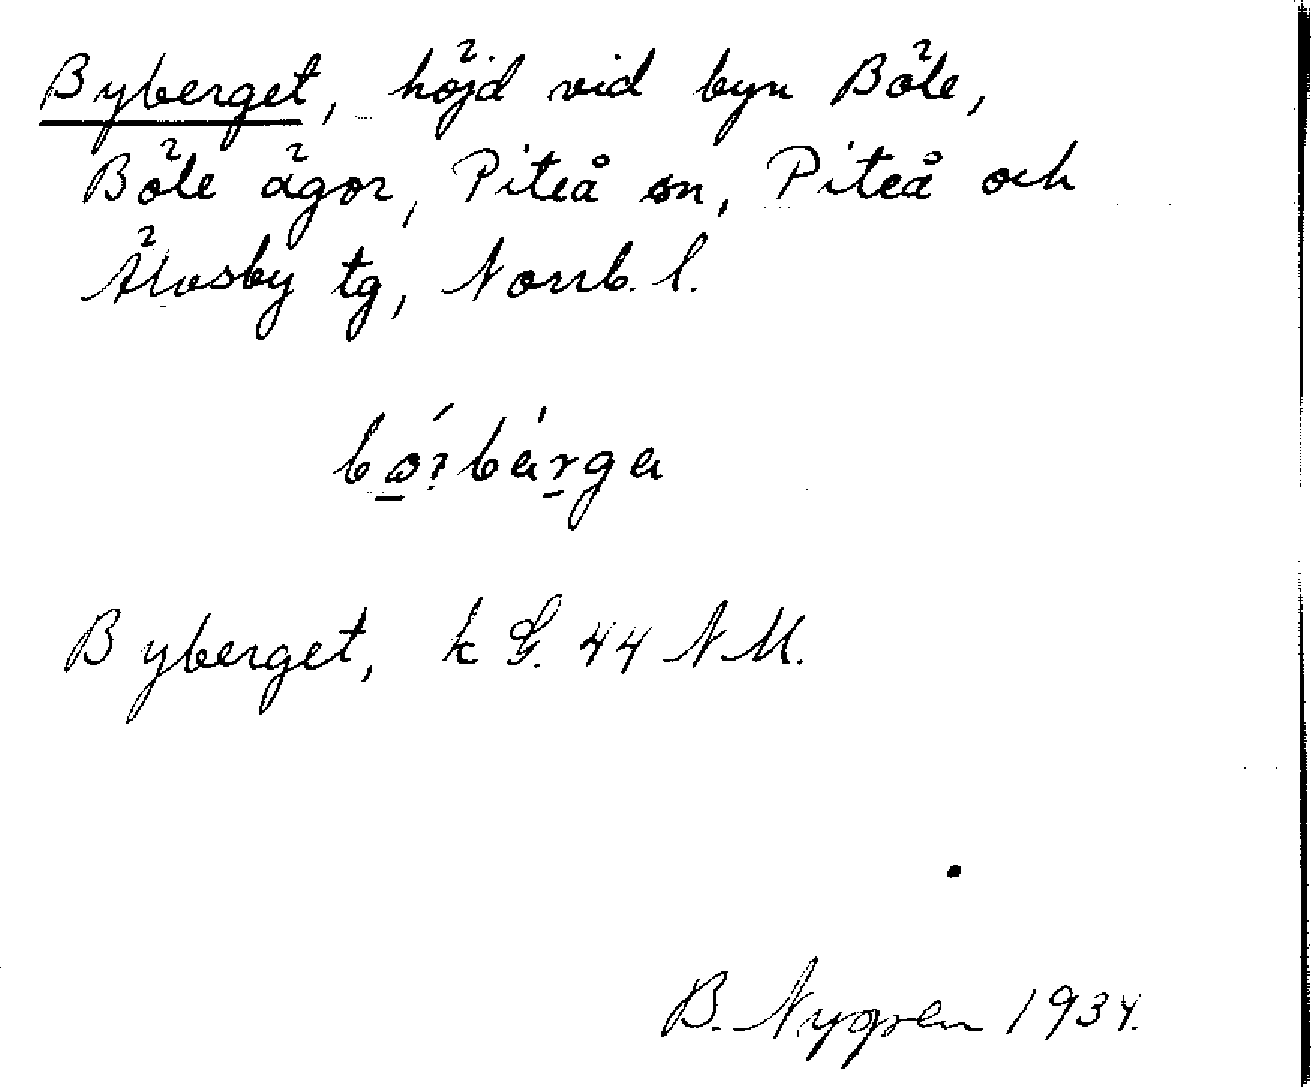 Byberget, höjd vid byn Böle,
Böle ägor, Piteå sn, Piteå och
Älvsby tg, Norrb. l.
Byberget, k G. 44 NM.
B. Nygren 1934.